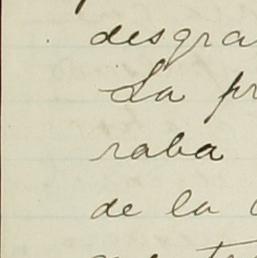 desgra
La pr
raba
de la